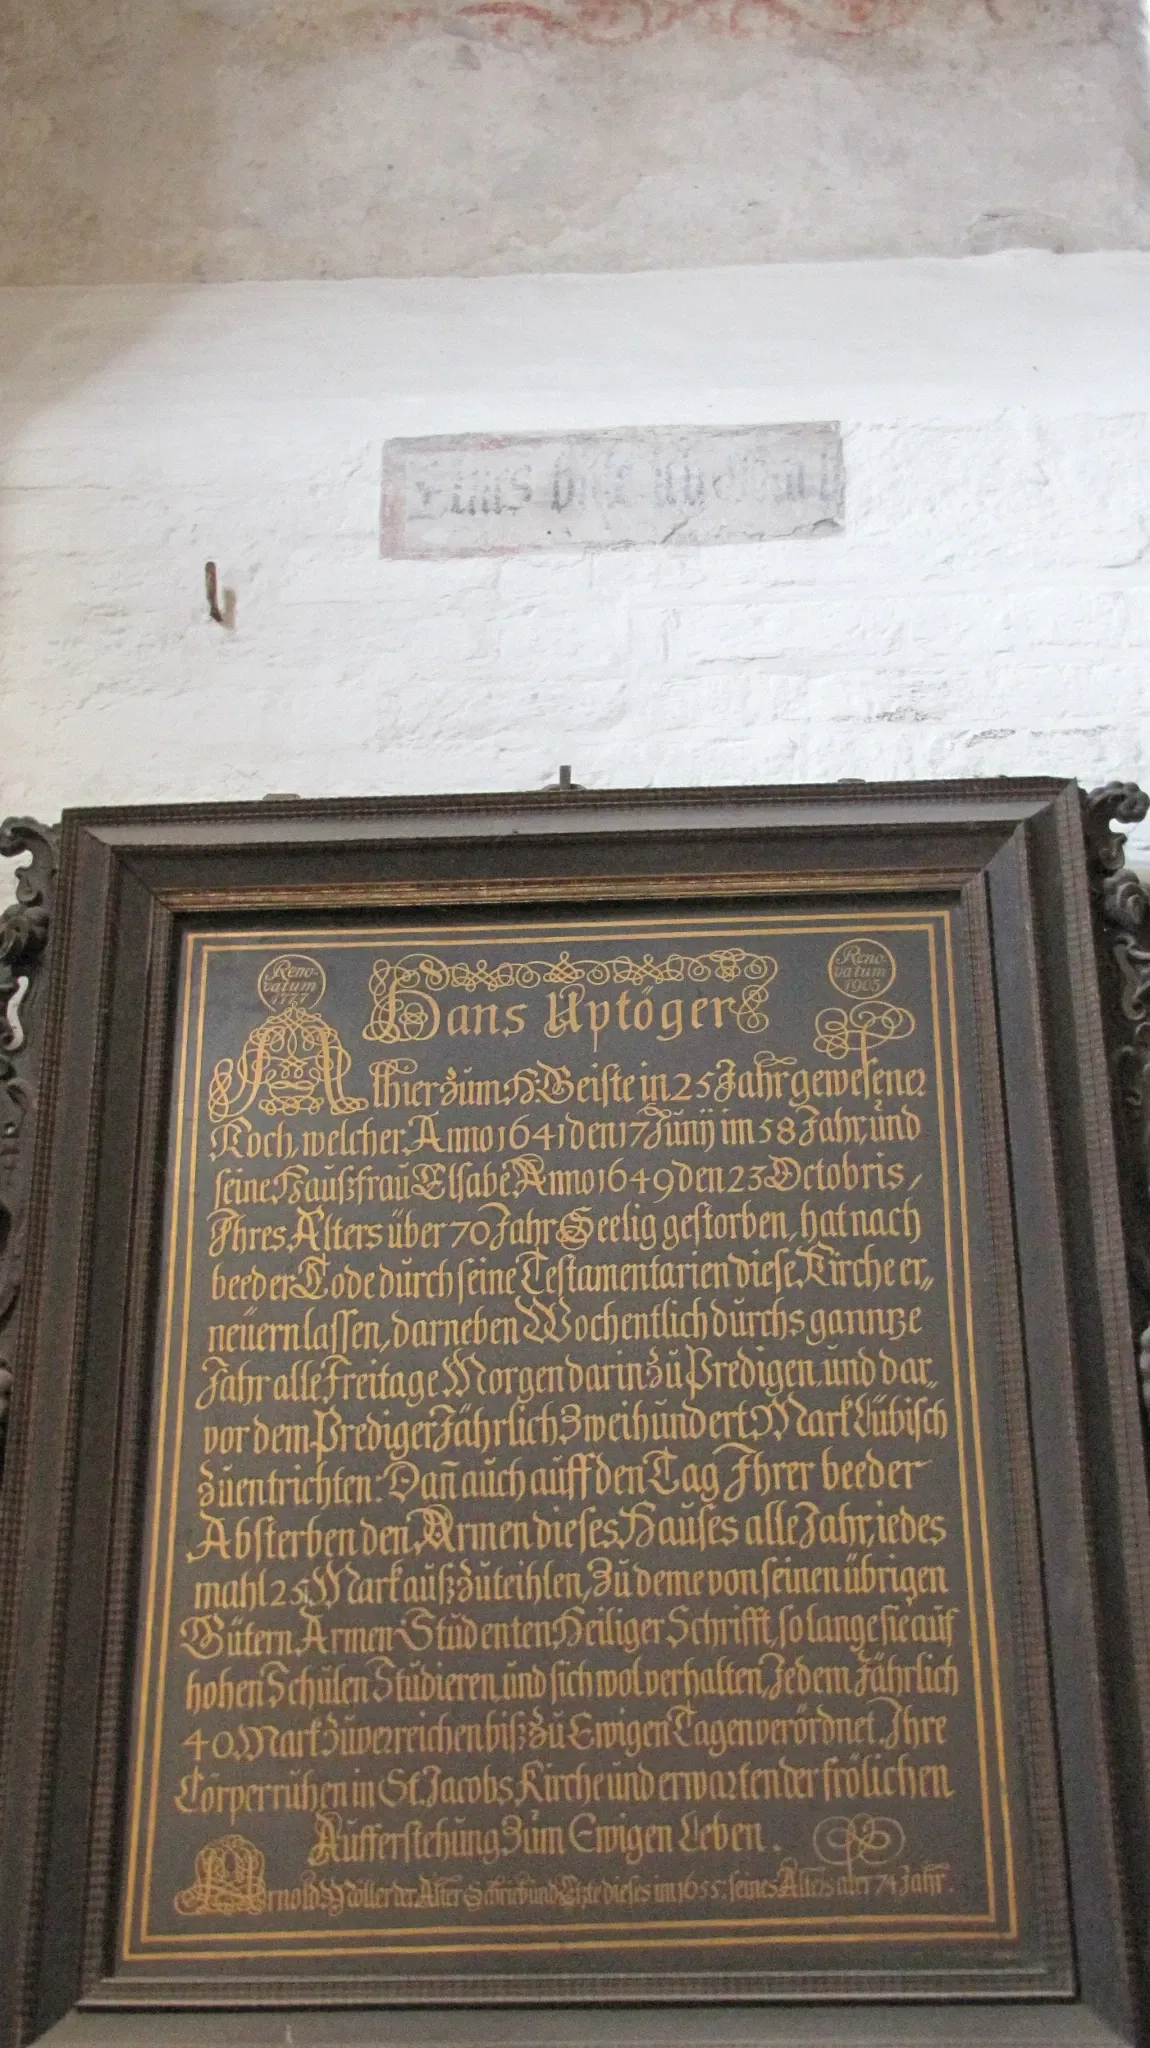 Reno-
vatum
1727
Reno-
vatum
1905
Hans Uptöger
Allhier Zum H. Geiste in 25 Jahr gewesener
Koch, welcher Anno 1641 den 17 Junij im 58 Jahr, und
seine Haußfrau Elsabe Anno 1649 den 23 Octobris,
Ihres Alters über 70 Jahr Seelig gestorben, hat nach
beeder Tode durch seine Testamentarien diese Kirche er„
neüern lassen, darneben Wochentlich durchsganntze
Jahr alle Freitage Morgen darin zu Predigen, und dar„
vor dem Prediger Jährlich Zweihundert Mark Lübisch
zu entrichten: Dañ auch auff den Tag Ihrer beeder
Absterben den Armen dieses Hauses alle Jahr, iedes
mahl 25 Mark auß zu teihlen, Zu deme von seinen übrigen
Gütern Armen Studenten Heiliger Schrifft, so lange sie auf
hohen Schulen Studieren, und sich wol verhalten, Jedem Jährlich
40 Mark zu verreichen biß zu Ewigen Tagen verördnet. Ihre
Cörper ruhen in St. Jacobs Kirche und erwarten der frölichen
Aufferstehung Zum Ewigen Leben.
Arnold Möller der Alter Schrieb und Etzte dieses im 1655. seines Alters aber 74 Jahr.